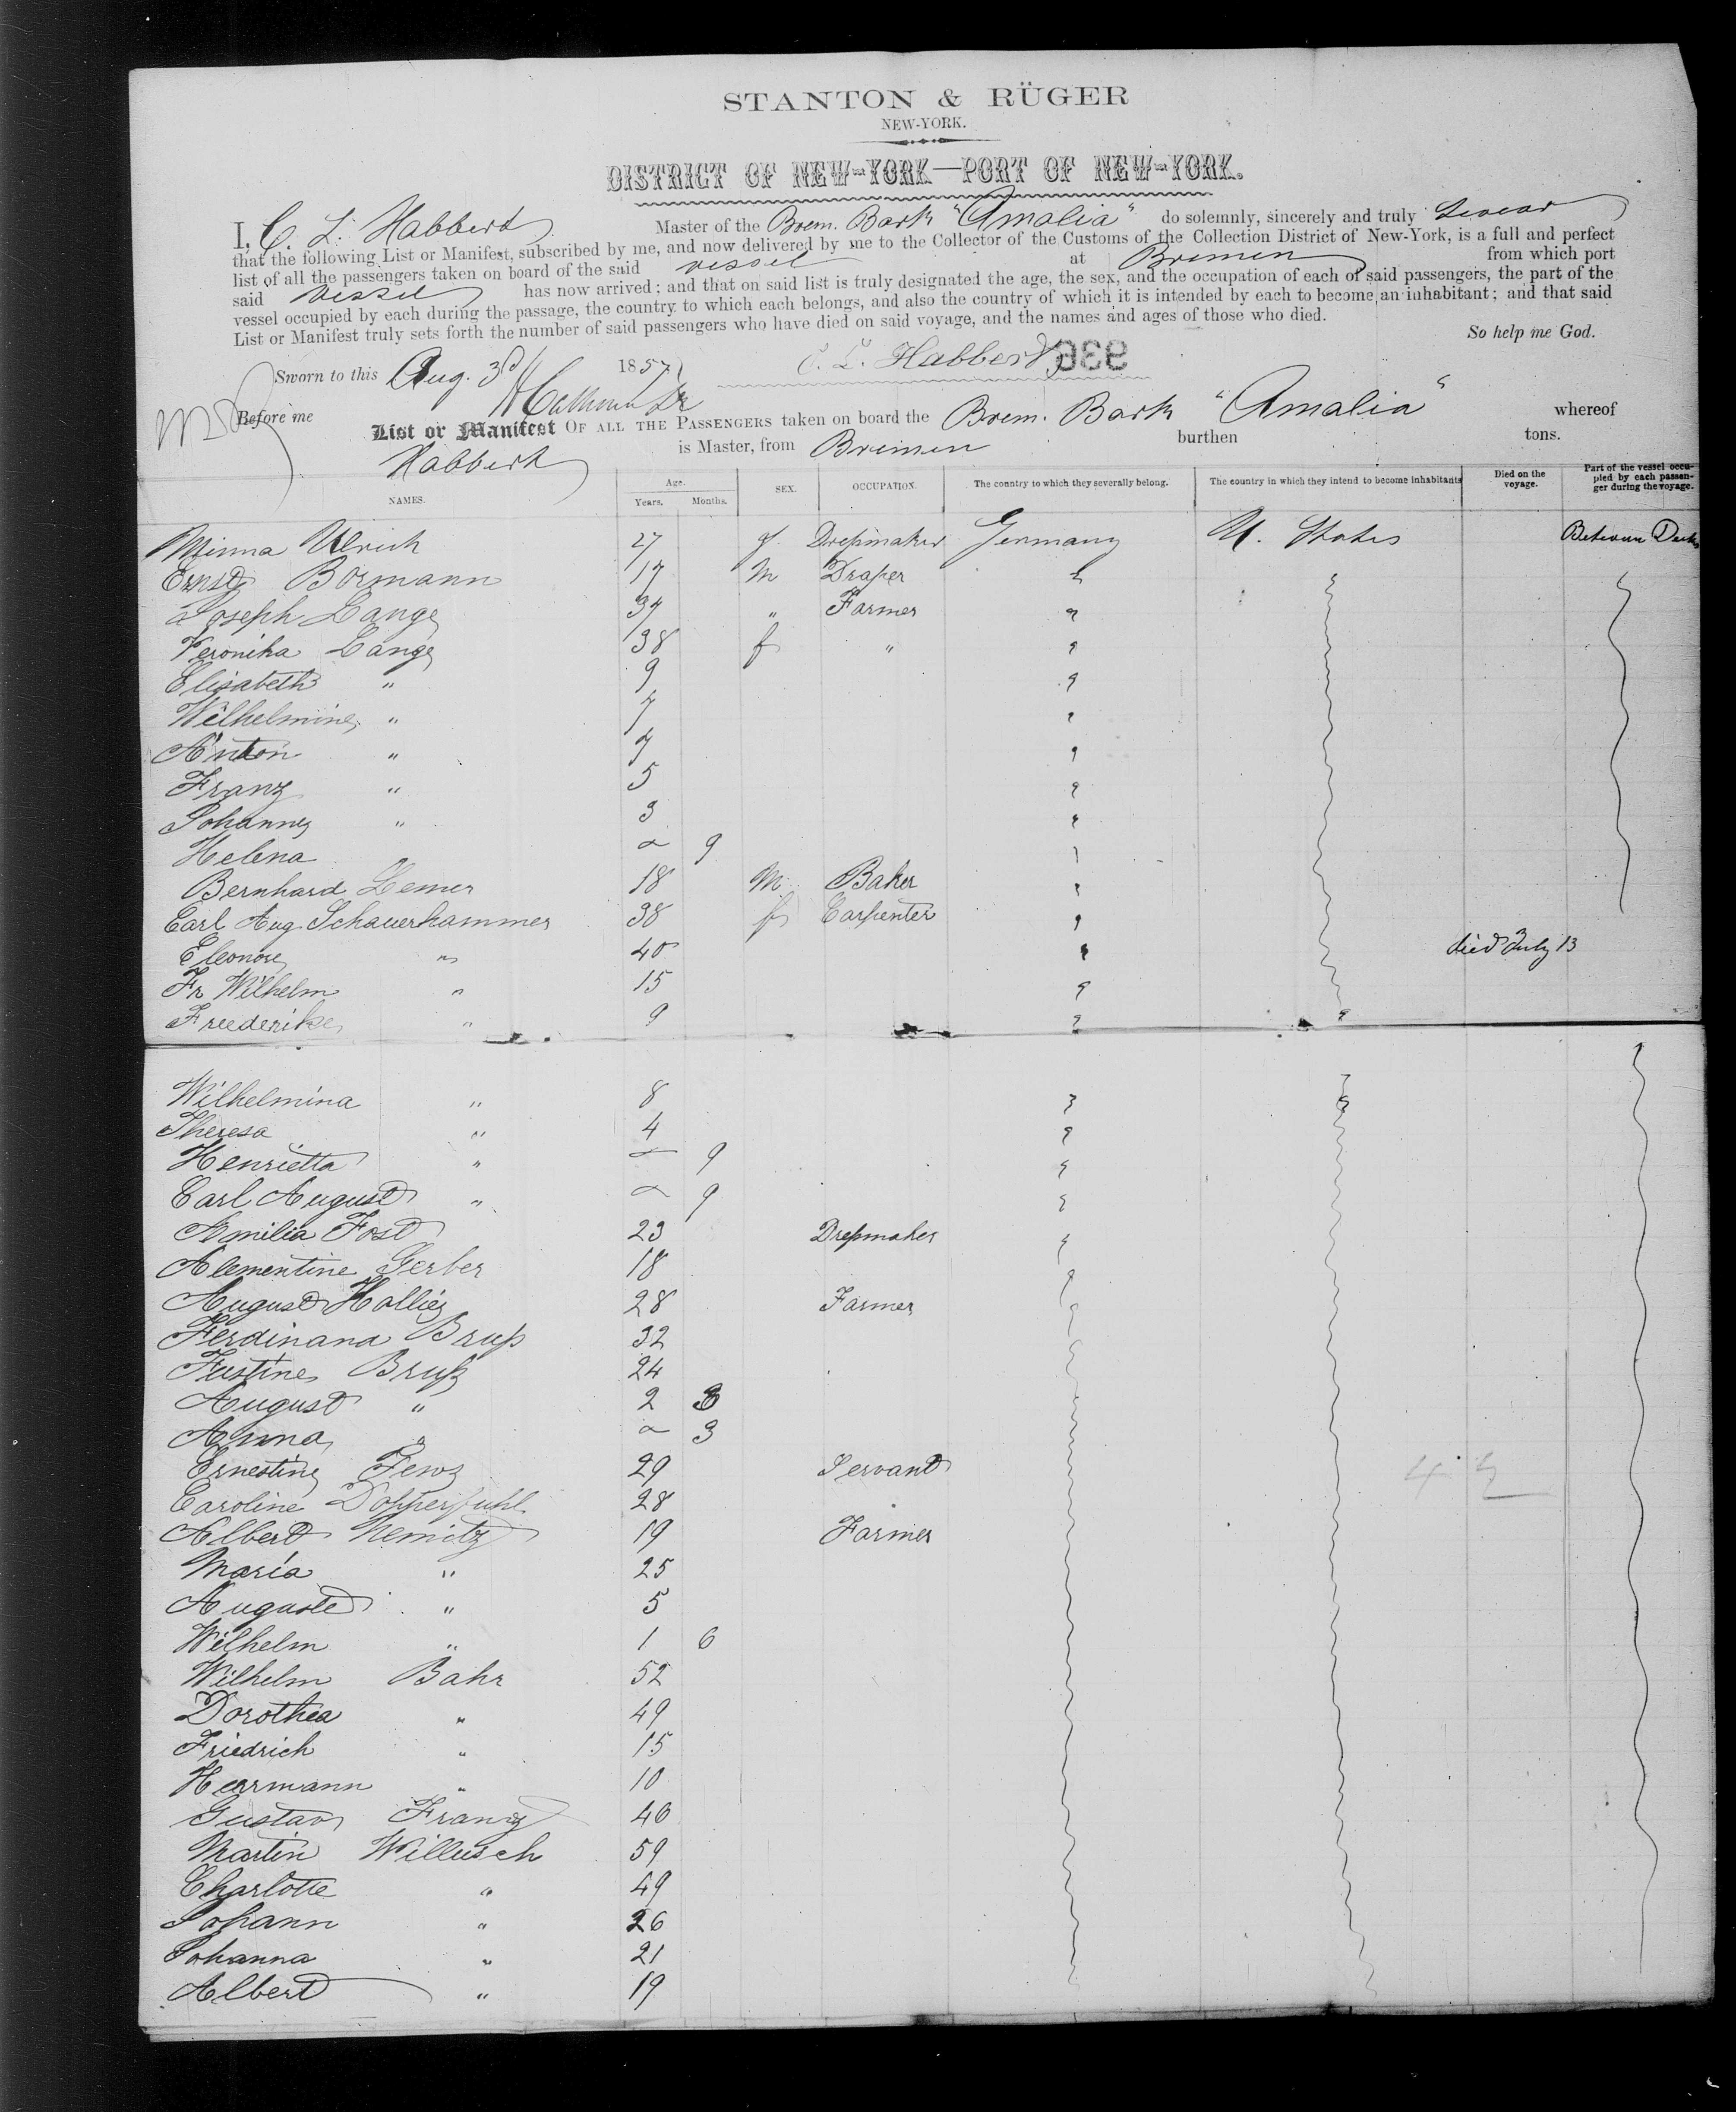 STANTON & RÜGER
NEW-YORK.
DISTRICT OF NEW-YORK—PORT OF NEW-YORK.
I, C. L. Habbert Master of the Brem. Bark "Amalia" do solemnly, sincerely and truly swear
that the following List or Manifest, subscribed by me, and now delivered by me to the Collector of the Customs of the Collection District of New-York, is a full and perfect
list of all the passengers taken on board of the said vessel at Bremen from which port
said vessel has now arrived; and that on said list is truly designated the age, the sex, and the occupation of each of said passengers, the part of the
vessel occupied by each during the passage, the country to which each belongs, and also the country of which it is intended by each to become an inhabitant; and that said
List or Manifest truly sets forth the number of said passengers who have died on said voyage, and the names and ages of those who died.
So help me God.
Sworn to this Aug. 3d 1857 C. L. Habbert 936
Before me
List or Manifest OF ALL THE PASSENGERS taken on board the Brem. Bark "Amalia" whereof
Habbert is Master, from Bremen burthen tons.
NAMES. Age. Years. Months. SEX. OCCUPATION. The country to which they severally belong. The country in which they intend to become inhabitants Died on the voyage. Part of the vessel occupied by each passenger during the voyage.
Minna Ulrich 27 f Dressmaker Germany U. States Between Decks
Ernst Bormann 17 m Draper
Joseph Lange 37 " Farmer
Veronika Lange 38 f "
Elisabeth " 9
Wilhelmine " 7
Anton " 7
Franz " 5
Johannes " 3
Helena 9
Bernhard Lemer 18 M Baker
Carl Aug. Schauerhammer 38 f Carpenter
Eleonore " 40 died July 13
Fr Wilhelm " 15
Freederike " 9
Wilhelmina " 8
Theresa " 4
Henrietta " 9
Carl August " 9
Amilia Fost 23 Dressmaker
Alementine Gerber 18
August Hallier 28 Farmer
Ferdinand Bruss 32
Justine Bruss 24
August " 2 3
Anna " 3
Ernestine 29 Servant
Caroline Dopperpuhl 28
Albert Nemitz 19 Farmer
Maria " 25
Auguste " 5
Wilhelm " 1 6
Wilhelm Bahr 52
Dorothea " 49
Friedrich " 15
Herrmann " 10
Gustav Franz 40
Martin Willusch 59
Charlotte " 49
Johann " 26
Johanna " 21
Albert " 19